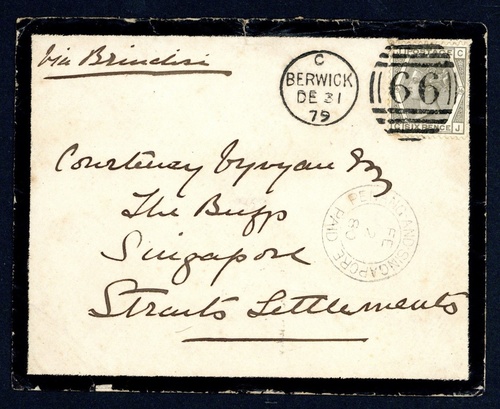 Via Brindisi
C
BERWICK
DE 31
79
66
POSTAGE C
C SIX PENCE J
Courtenay Vyvyan Esq
The Buffs
Singapore
Straits Settlements
SINGAPORE PAID
FE
80